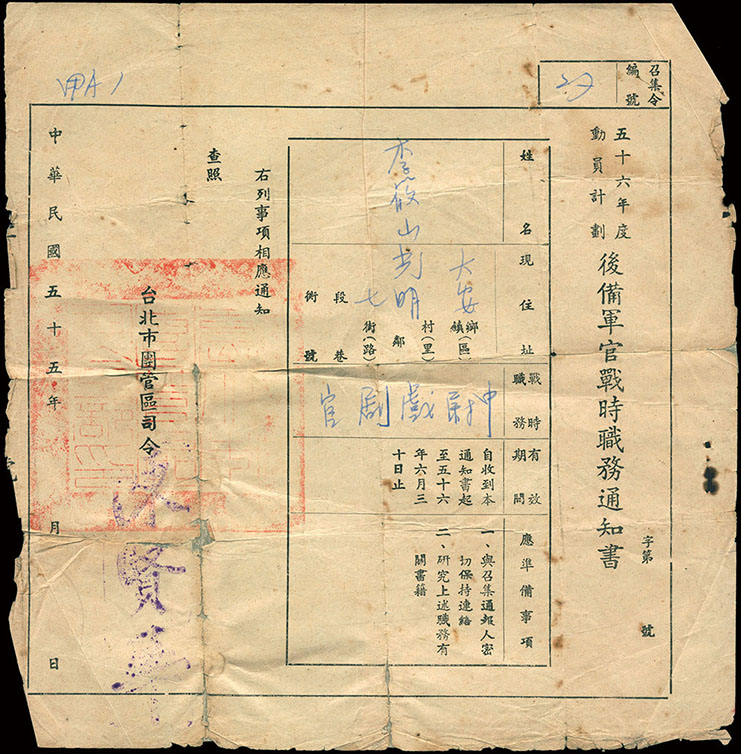 召集令編號
甲A1
五十六年度動員計劃
後備軍官戰時職務通知書
字第 號
姓名
現住址
戰時職務
有效期間
應準備事項
李筱山
大安 鄉鎮(區)
光明 村(里) 鄰
七 街(路)
段 巷
街 號
戲劇官
自收到本
通知書起
至五十六
年六月三
十日止
一、與召集通報人密
切保持連絡
二、研究上述職務有
關書籍
右列事項相應通知
查照
台北市團管區司令
賢
中華民國五十五年 月 日